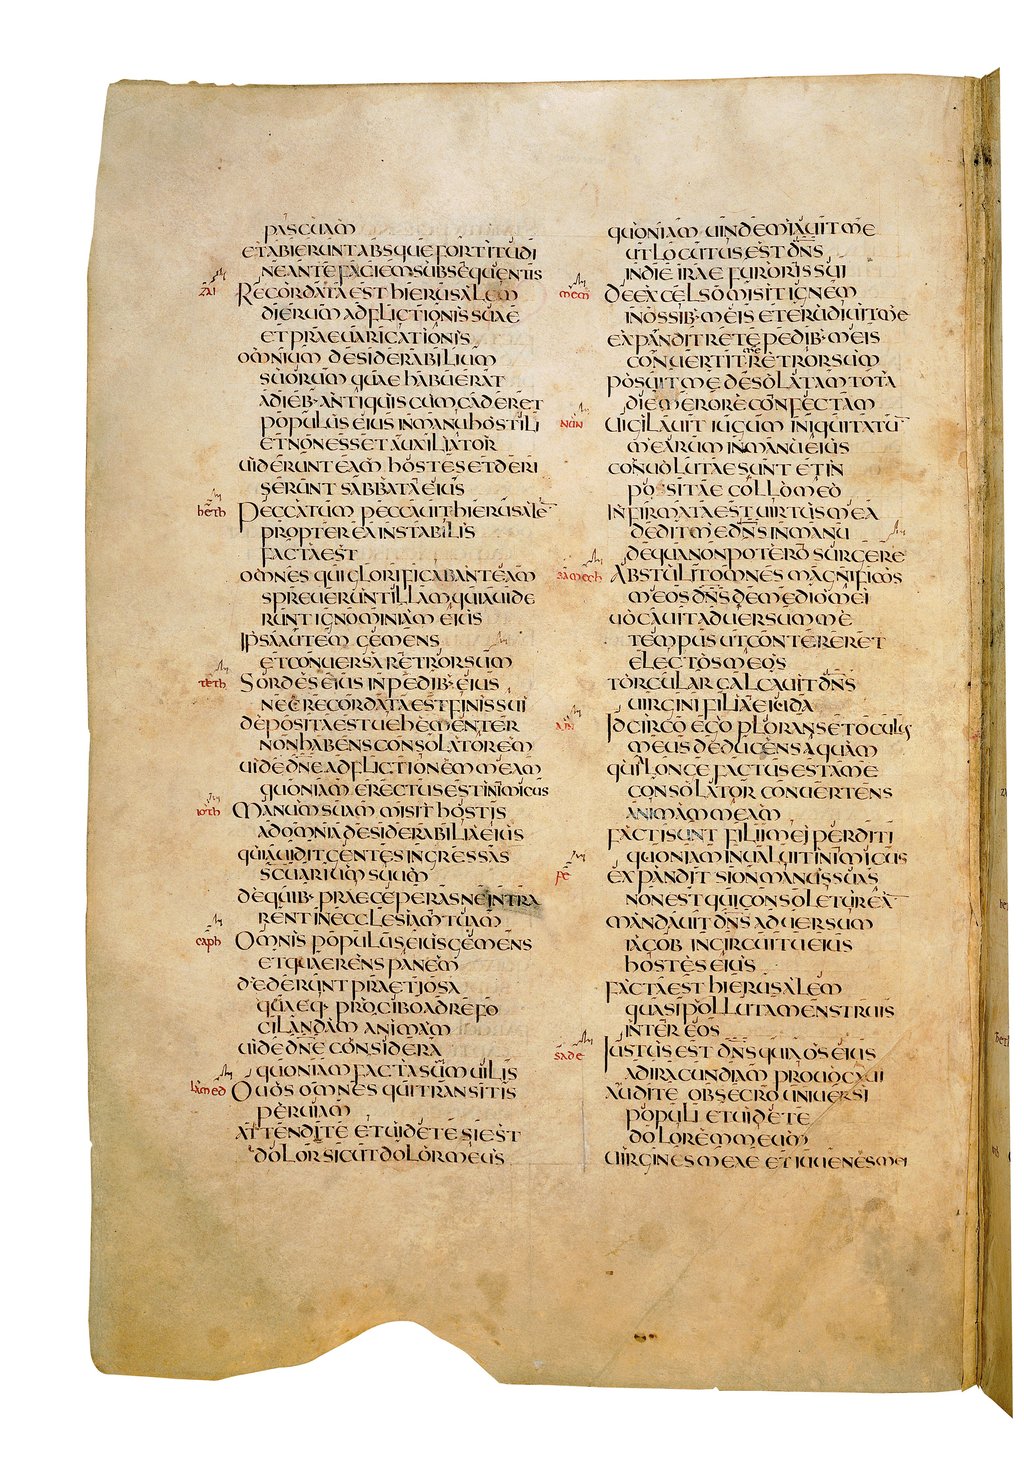 pascuam
et abierunt absque fortitudi
ne ante faciem subsequentis
zai Recordata est hierusalem
dierum adflictionis suae
et praeuaricationis
omnium desiderabilium
suorum quae habuerat
a dieb· antiquis cum caderet
populus eius in manu hostili
et non esset auxiliator
uiderunt eam hostes et deri
serunt sabbata eius
heth Peccatum peccauit hierusalē
propter ea instabilis
facta est
omnes qui glorificabant eam
spreuerunt illam quia uide
runt ignominiam eius
ipsa autem gemens
et conuersa retrorsum
teth Sordes eius in pedib· eius
nec recordata est finis sui
deposita est uehementer
non habens consolatorem
uide dn̄e adflictionem meam
quoniam erectus est inimicus
ioth Manum suam misit hostis
ad omnia desiderabilia eius
quia uidit gentes ingressas
sc̄uarium suum
de quib· praeceperas ne intra
rent in ecclesiam tuam
caph Omnis populus eius gemens
et quaerens panem
dederunt praetiosa
quaeq· pro cibo ad refo
cilandam animam
uide dn̄e considera
quoniam facta sum uilis
lamed O uos omnes qui transitis
per uiam
attendite et uidete si est
dolor sicut dolor meus
quoniam uindemiauit me
ut locutus est dn̄s
in die irae furoris sui
mem De excelso misit ignem
in ossib· meis et erudiuit me
expandit rete pedib· meis
conuertit me retrorsum
posuit me desolatam tota
die merore confectam
nun Uigilauit iugum iniquitatū
mearum in manu eius
conuolutae sunt et in
positae collo meo
infirmata est uirtus mea
dedit me dn̄s in manu
de qua non potero surgere
samech Abstulit omnes magnificos
meos dn̄s de medio mei
uocauit aduersum me
tempus ut contereret
electos meos
torcular calcauit dn̄s
uirgini filiae iuda
ain Idcirco ego plorans et oculus
meus deducens aquam
quia longe factus est a me
consolator conuertens
animam meam
facti sunt filii mei perditi
quoniam inualuit inimicus
pe expandit sion manus suas
non est qui consoletur eā
mandauit dn̄s aduersum
iacob in circuitu eius
hostes eius
facta est hierusalem
quasi polluta menstruis
inter eos
sade Iustus est dn̄s quia os eius
ad iracundiam prouocaui
audite obsecro uniuersi
populi et uidete
dolorem meum
uirgines meae et iuuenes mei